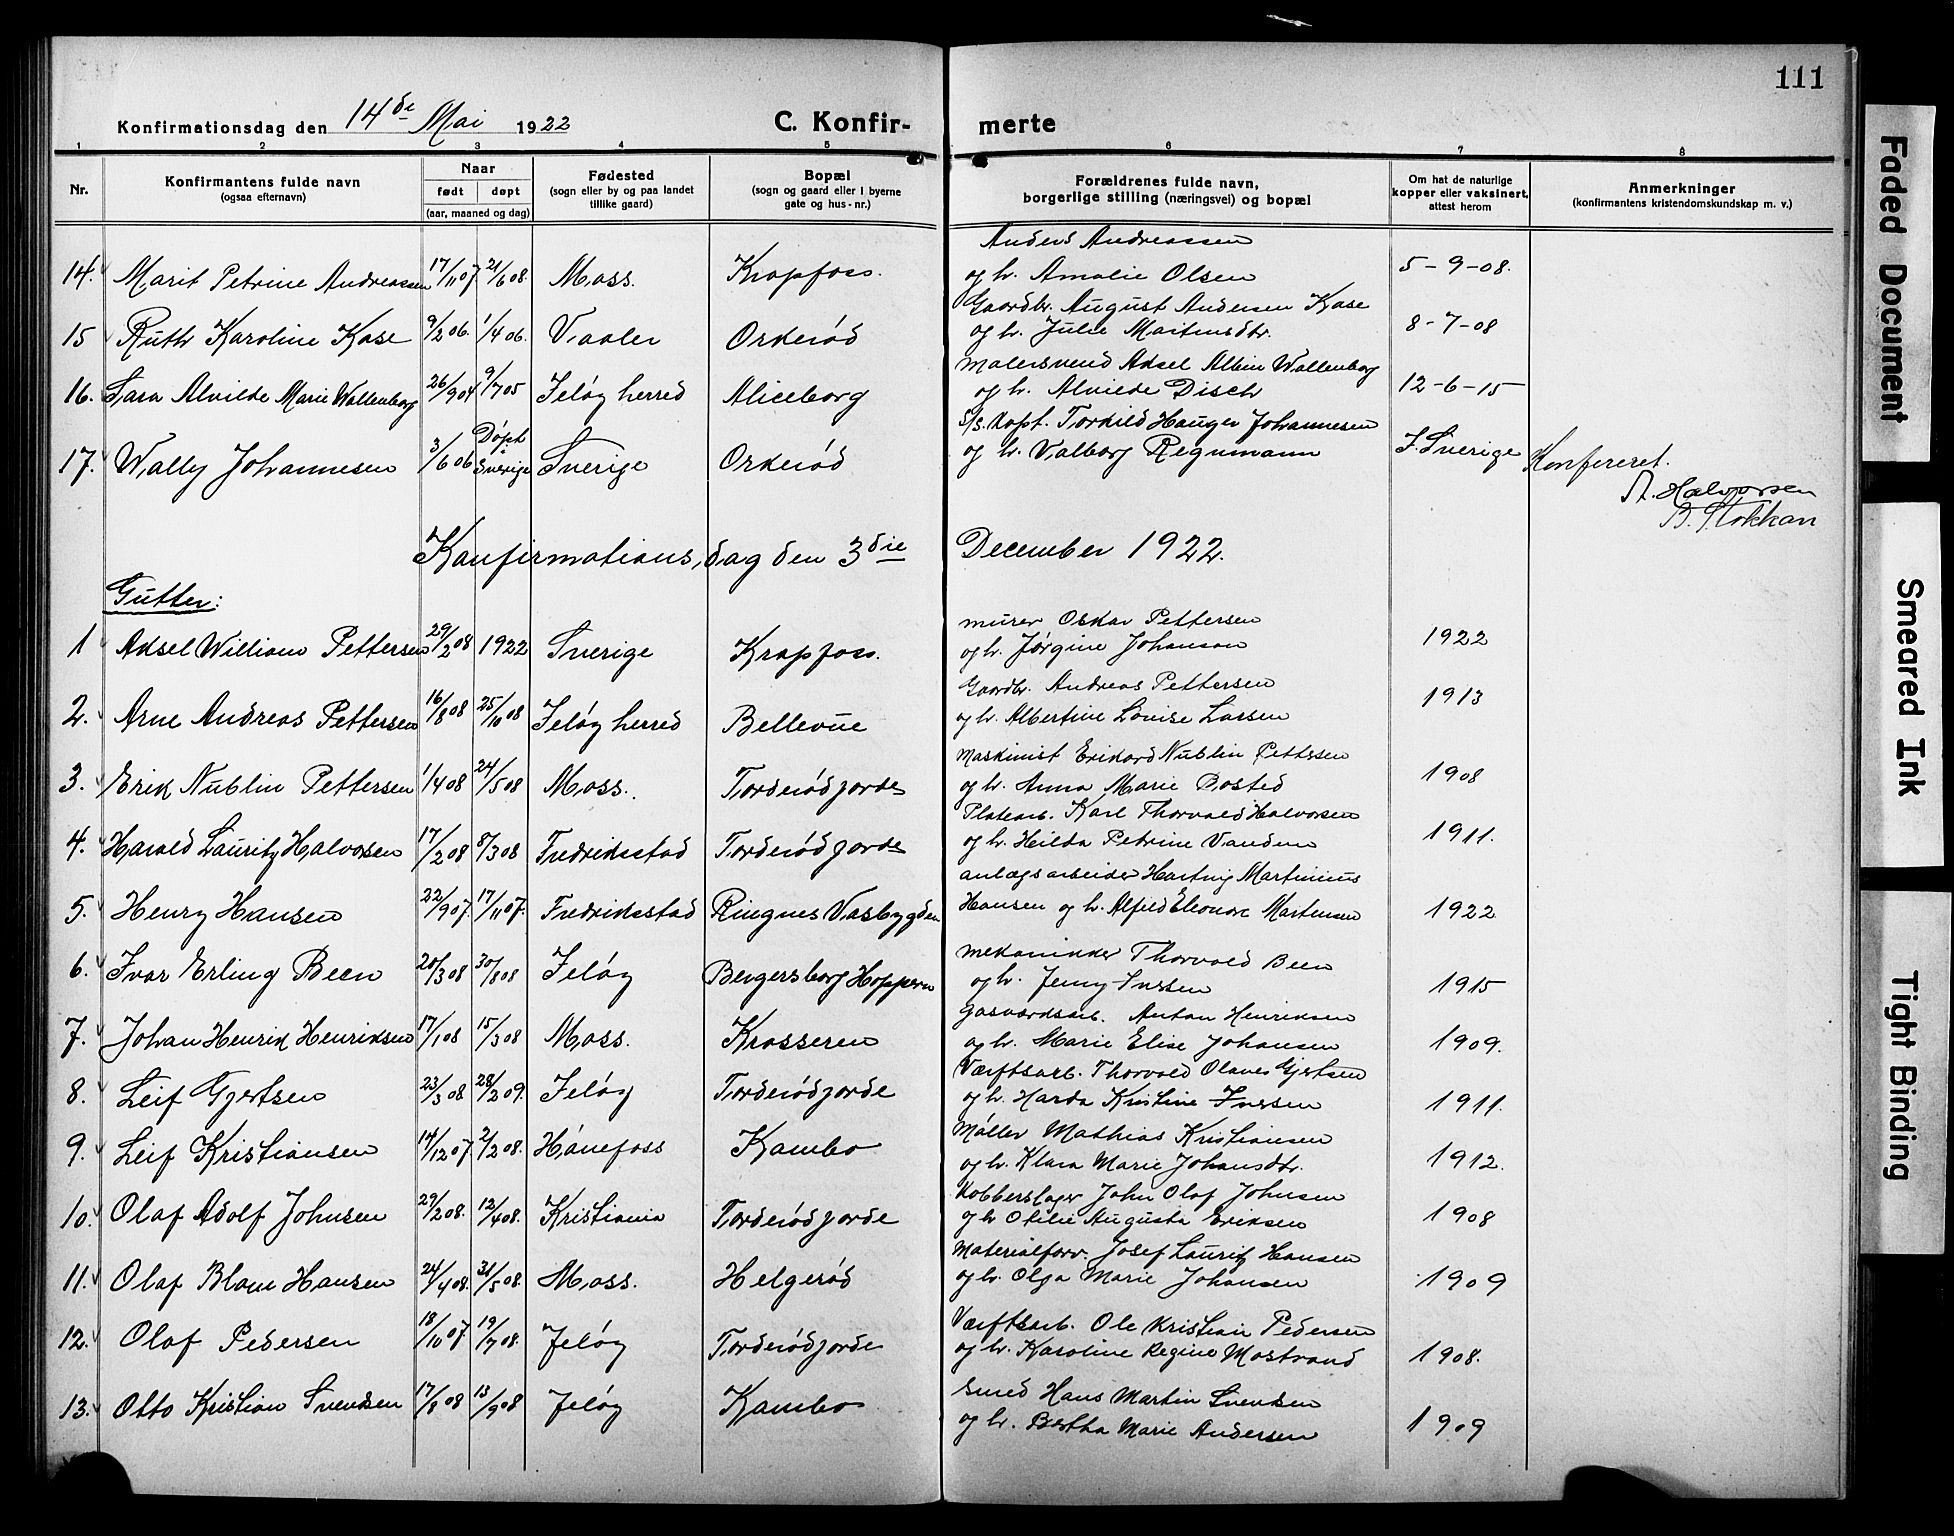 111
Konfirmationsdag den 14de Mai 1922 C. Konfirmerte
1 2 3 4 5 6 7 8
Nr. Konfirmantens fulde navn (ogsaa efternavn) Naar født døpt (aar, maaned og dag) Fødested (sogn eller by og paa landet tillike gaard) Bopæl (sogn og gaard eller i byerne gate og hus-nr.) Forældrenes fulde navn, borgerlige stilling (næringsvei) og bopæl Om hat de naturlige kopper eller vaksinert, attest herom Anmerkninger (konfirmantens kristendomskundskap m. v.)
Anders Andreassen
14. Marit Petrine Andreassen 17/11 07. 21/6 08. Moss. Krapfoss. og h. Amalie Olsen 5-9-08.
Gaardbr. August Andersen Kase
15 Ruth Karoline Kase 9/2 06. 1/4 06. Vaaler Orkerød og h. Julie Martensdtr. 8-7-08
Malersvend Aksel Albin Wallenborg
16. Sara Alvilde Marie Wallenborg 26/9 04 9/7 05 Jeløy herred Aliceborg og h. Alvilde Disch 12-6-15
S/S. Kapt. Torkild Hauger Johannesen
17. Wally Johannesen 3/6 06 Døpt i Sverige Sverige Orkerød og h. Valborg Regnmann I. Sverige Konfereret.
A. Halvorsen
B. Stokkan
Konfirmationsdag den 3die December 1922.
Gutter:
murer Oskar Pettersen
1 Aksel William Pettersen 29/2 08 1922 Sverige Krapfoss. og h. Jørgine Johanson 1922
Gaardbr. Andreas Pettersen
2. Arne Andreas Pettersen 16/8 08 25/10 08 Jeløy herred Bellevue og h. Albertine Louise Larsen 1913
Maskinist Erikard Nublin Pettersen
3. Erik Nublin Pettersen 1/4 08 24/5 08 Moss. Torderødjorde og h. Anna Marie Bosted 1908
Platearb. Karl Thorvald Halvorsen
4. Harald Lauritz Halvorsen 17/2 08 8/3 08 Fredriksstad Torderødjorde og h. Hilda Petrine 1911.
anlægsarbeider Hartvig Martinius
5. Henry Hansen 22/9 07. 17/11 07. Fredriksstad Ringnes Vasbygden Hansen og h. Alfild Eleonore Martensen 1922
mekaniker Thorvald Been
6. Ivar Erling Been 20/3 08 30/8 08 Jeløy Bergersborg Hoppern og h. Jenny Iversen 1915
Gasværksarb. Anton Henriksen
7. Johan Henrik Henriksen 17/1 08 15/3 08 Moss. Krosseren og h. Marie Elise Johansen 1909.
Værftsarb. Thorvald Olaves Gjertsen
8. Leif Gjertsen 23/3 08 28/2 09. Jeløy Torderødjorde og h. Harda Kristine Iversen 1911.
Møller Mathias Kristiansen
9. Leif Kristiansen 14/12 07. 2/2 08. Hønefoss Kambo og h. Klara Marie Johansdtr. 1912.
Kobberslager John Olaf Johnsen
10. Olaf Adolf Johnsen 29/2 08. 12/4 08. Kristiania Torderødjorde og h Otilie Augusta Eriksen 1908
Materialforv. Josef Lauritz Hansen
11. Olaf Blom Hansen 24/4 08. 31/5 08. Moss. Helgerød og h. Olga Marie Johansen 1909
Værftsarb. Ole Kristian Pedersen
12. Olaf Pedersen 18/10 07. 19/7 08. Jeløy Torderødjorde og h. Karoline Regine Mostrand 1908.
Smed Hans Martin Svendsen
13. Otto Kristian Svendsen 17/8 08 13/9 08 Jeløy Kambo og h. Bertha Marie Andersen 1909
Faded Document
Smeared Ink
Tight Binding